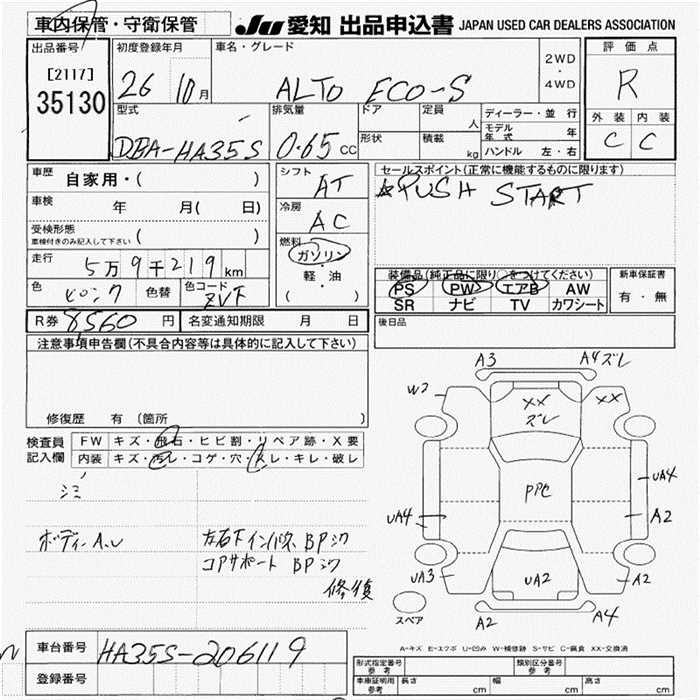 車内保管・守衛保管
JU 愛知 出品申込書 JAPAN USED CAR DEALERS ASSOCIATION
出品番号
[2117]
35130
初度登録年月
26 10月
車名・グレード
ALTO ECO-S
2WD
・
4WD
評価点
R
外装 内装
C C
型式
DBA-HA35S
排気量
0.65 CC
ドア
形状
定員
人
積載
kg
ディーラー・並行
モデル年式 年
ハンドル 左・右
車歴
自家用・( )
車検 年 月( 日)
受検形態
車検付きのみ記入して下さい ( )
走行
5万9千219km
色 ピンク 色替 色コード ZVF
R券 8,560 円 名変通知期限 月 日
シフト
AT
冷房
AC
燃料
ガソリン
・
軽・油
( )
セールスポイント(正常に機能するものに限ります)
☆PUSH START
装備品(純正品に限り○をつけてください)
PS PW エアB AW
SR ナビ TV カワシート
新車保証書
有・無
後日品
注意事項申告欄(不具合内容等は具体的に記入して下さい)
修復歴 有 〔箇所 〕
検査員
記入欄
FW キズ・飛石・ヒビ割・リペア跡・X要
内装 キズ・汚レ・コゲ・穴・スレ・キレ・破レ
シミ
ボディーA.U
左右下インパネ BPシワ
コアサポート BPシワ
修復
A3 A4ズレ
W2
XX
ズレ
XX
PPC
UA4
A2
UA4
UA3
UA2
A2
スペア
A2
A4
A-キズ E-エクボ U-凹み W-補修跡 S-サビ C-腐食 XX-交換済
車台番号 HA35S-206119
登録番号
形式指定番号
参考
類別区分番号
参考
車庫証明用
参考
長さ cm 幅 cm 高さ cm